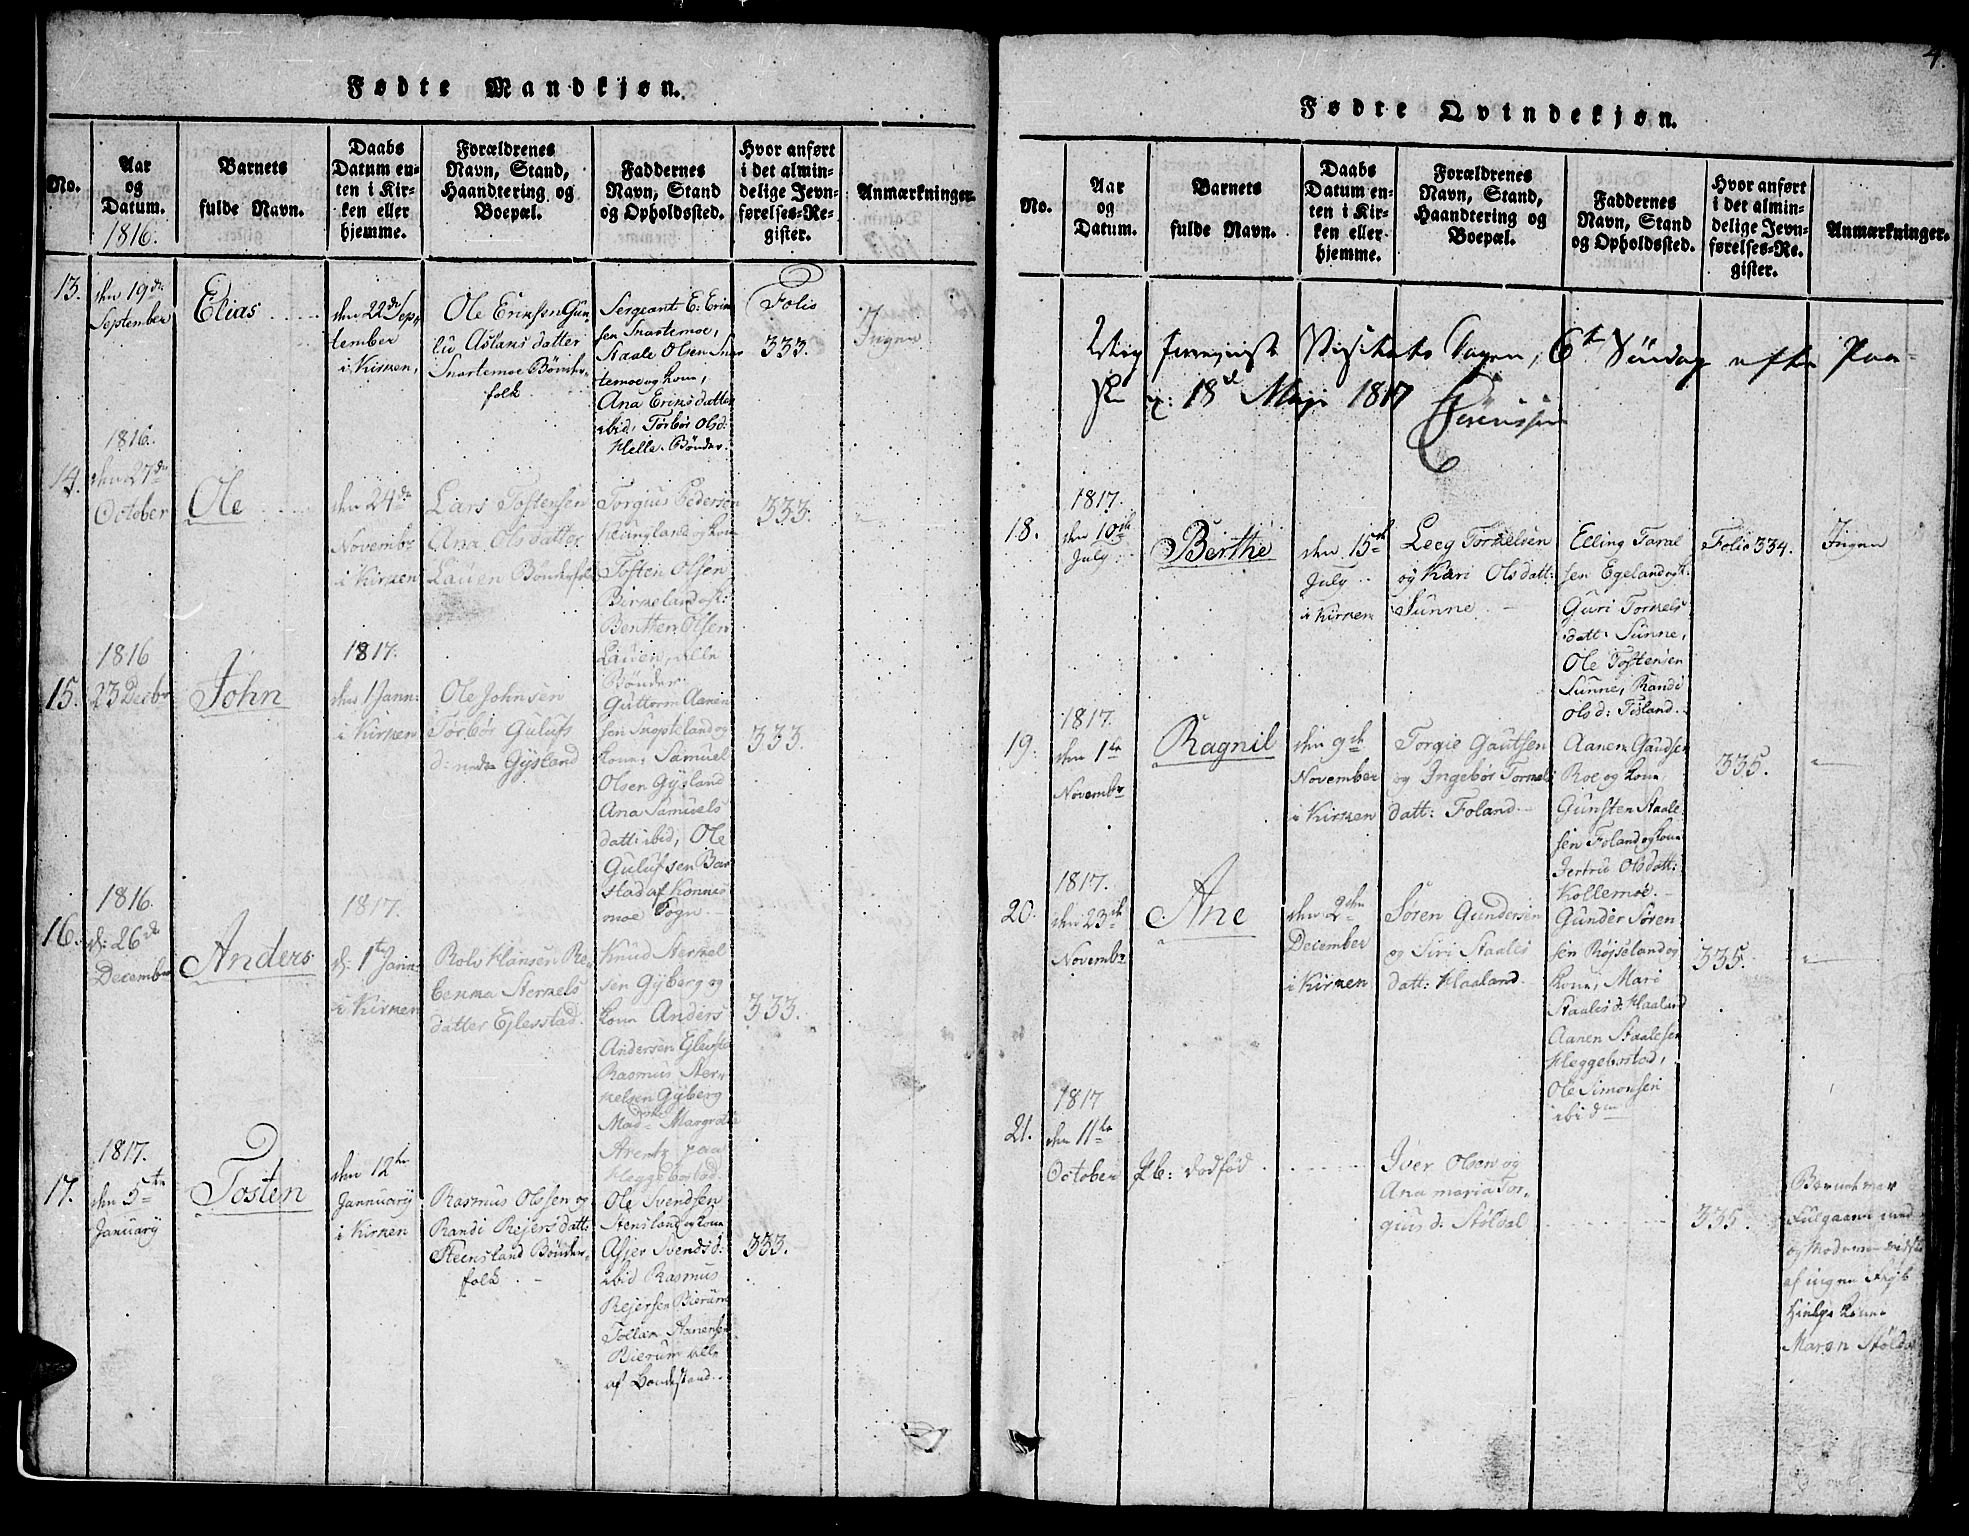 Fødte Mandkjøn.
No.
Aar
og
Datum.
1816.
Barnets
fulde Navn.
Daabs
Datum en-
ten i Kir-
ken eller
hjemme.
Forældrenes
Navn, Stand,
Haandtering og
Boepæl.
Faddernes
Navn, Stand
og Opholdssted.
Hvor anført
i det almin-
delige Jevn-
førelses-Re-
gister.
Anmærkninger.
13.
den 19de
September
Elias
den 22de Sep-
tember
i Kirken,
Ole Eriksen Gun-
lu Aslaks datter
Snartemoe Bønder-
folk
Sergeant E. Erik
sen Snartemoe,
Staale Olsen Snar
temoe og kone,
Ana Eriksdatter
ibid, Torbor Olsd:
Helle. Bønder.
Folio
333.
Ingen
14.
1816.
den 27de
October
Ole
den 24de
Novembr
i Kirken
Lars Tostensen
Ana Olsdatter
Lauen Bønderfolk
Torgius Pedersen
Kungland og kone
Tosten Olsen
Birkeland og k:
Bentten Olsen
Lauen, alle
Bønder.
333.
15.
1816
23 Decbr
John
1817.
den 1 Jann:
i Kirken
Ole Johnsen
Torbor Gulufs
d: Gysland
Guttorm Aanen
sen og
kone, Samuel
Olsen Gysland
Ana Samuels
datt: ibid, Ole
Gulufsen Bar
stad af Konnis
moe Sogn
333.
16.
1816.
d: 26de
December
Anders
1817.
d: 1st Jann:
i Kirken
Rolv Hansen Re
benna Sterkels
datter Eglestad.
Knud Sterkel
sen Gyberg og
kone Anders
Andersen
Rasmus Ster-
kelsen Gyberg
Mad: Margrete
Arentz paa
Heggebostad.
333.
17.
1817.
den 5te
January
Tosten
den 12te
Jannuary
i Kirken
Rasmus Olssen og
Randi Rejersdatt:
Steensland Bønder-
folk
Ole Svendsen
Stensland og kone
Asjer Svendsd:
ibid Rasmus
Rejersen Bierum
Tollak Aanensen
Bierum alle
af Bondestand.
333.
4.
Fødte Qvindekjøn.
No.
Aar
og
Datum.
Barnets
fulde Navn.
Daabs
Datum en-
ten i Kir-
ken eller
hjemme.
Forældrenes
Navn, Stand,
Haandtering og
Boepæl.
Faddernes
Navn, Stand
og Opholdssted.
Hvor anført
i det almin-
delige Jevn-
førelses-Re-
gister.
Anmærkninger.
Visitats Dagen, 6te Søndag efter Paa-
18de Maji 1817
Sørenssen
18.
1817.
den 10de
July
Berthe
den 15de
July
i Kirken
Leeg Torkelsen
og Kari Olsdatt:
Sunne
Elling Taral
sen Egeland og k:
Guri Torkels
datt: Sunne,
Ole Tostensen
Sunne, Randi
Olsd: Tisland.
Folio 334.
Ingen
19.
1817.
den 1te
Novembr
Ragnil
den 9de
November
i Kirken
Torgie Gautsen
og Ingebor Torkels
datt: Foland.
Aanen Gaudsen
Roe og kone,
Gunsten Staale
sen Foland og kone
Jertrud Olsdatt:
Kollemoe.
335.
20.
1817.
den 23de
Novembr
Ane
den 2den
December
i Kirken
Søren Gundersen
og Siri Staales
datt: Haaland.
Gunder Søren
sen Røjseland og
kone, Mari
Staalesd: Haaland
Aanen Staalesen
Heggebostad,
Ole Simonsen
ibidem
335.
21.
1817
den 11te
October
P.b: dødfød
Iver Olsen og
Ana maria Tor-
giusd: Støldal
335.
Barnet var
Fulgaaen med
og Moderen
af ingen
Hielpe kone
Maren Støldal